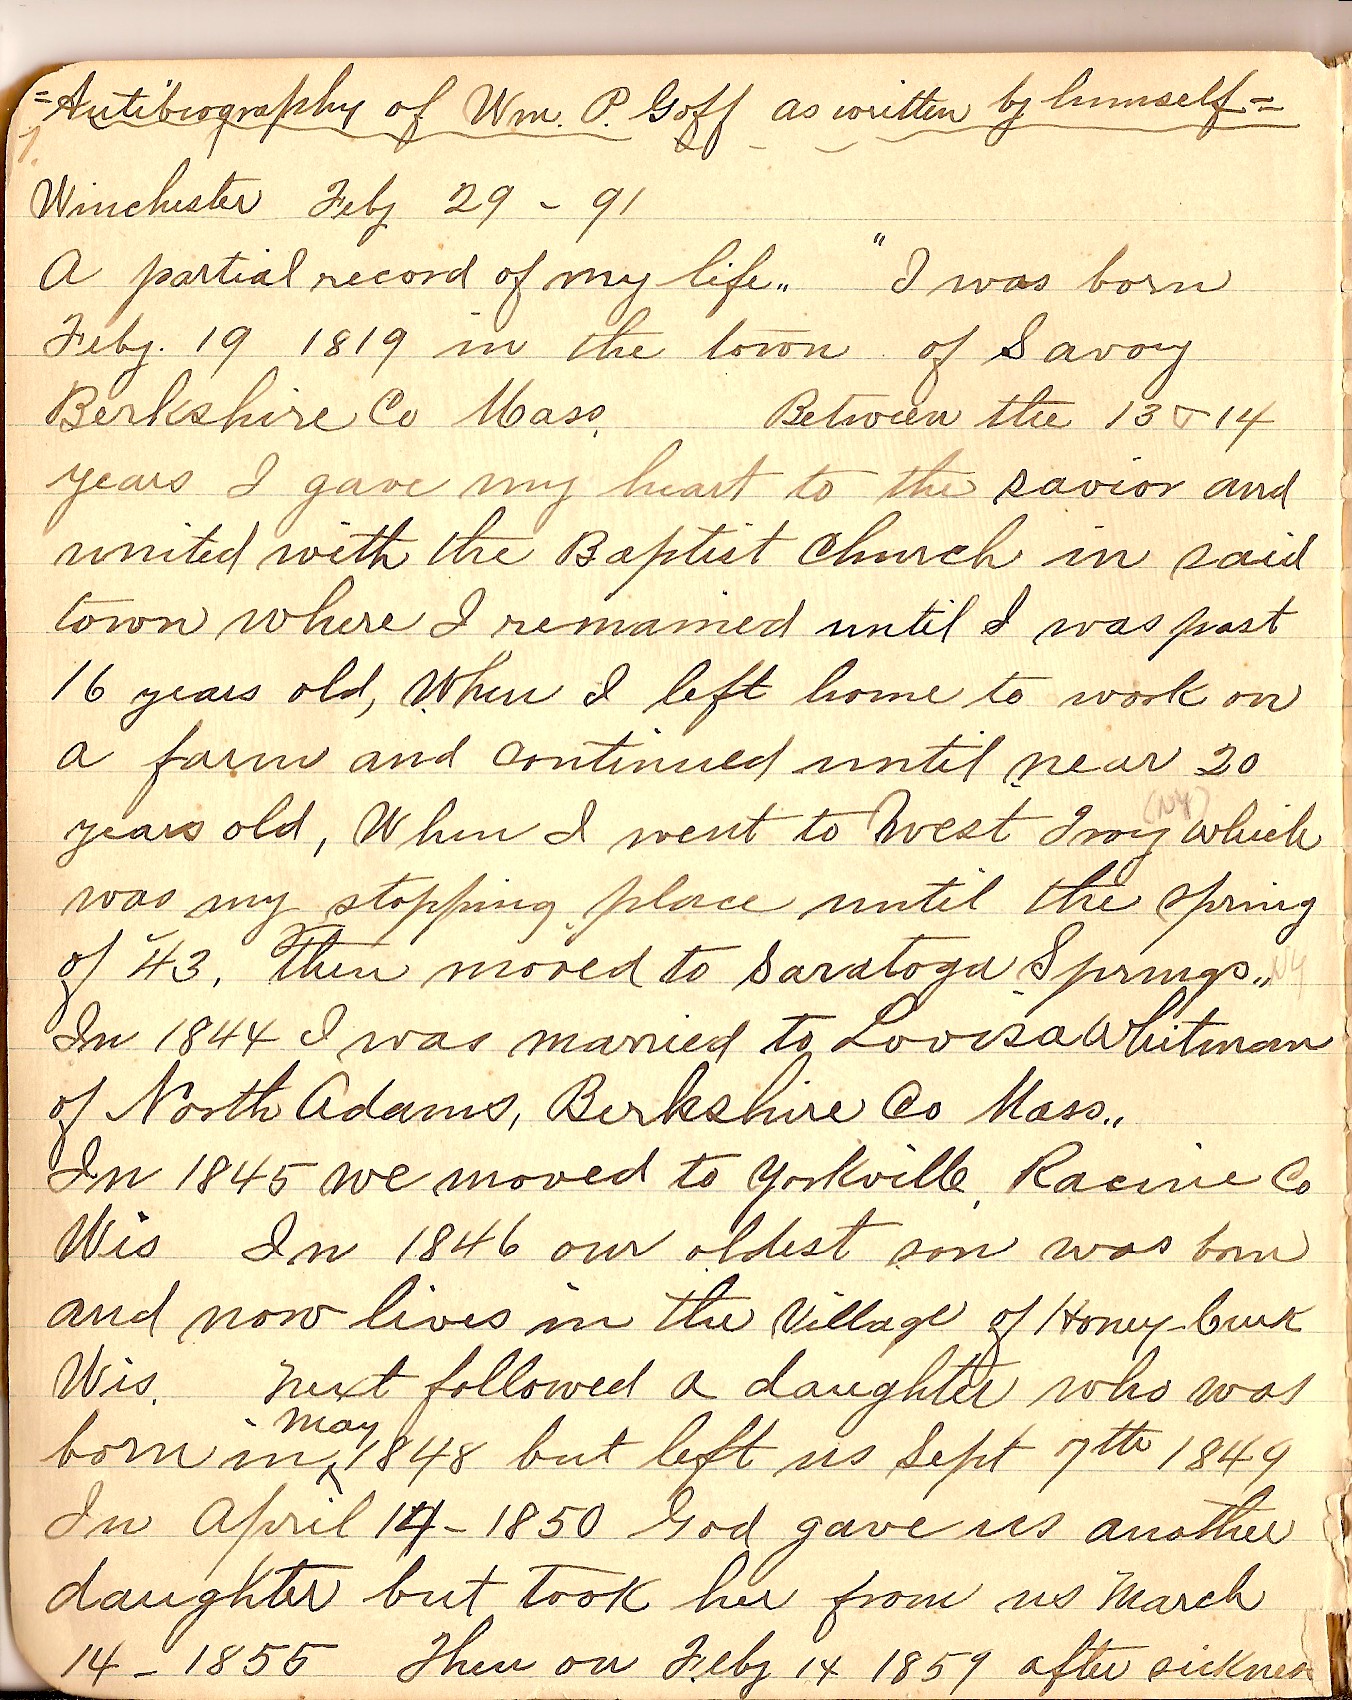 =Autibiography of Wm. P. Goff as written by himself=
Winchester Feby 29 - 91
A partial record of my life.. "I was born
Feby. 19 1819 in the town of Savoy
Berkshire Co Mass. Between the 13 & 14
years I gave my heart to the savior and
united with the Baptist Church in said
town where I remained until I was past
16 years old, When I left home to work on
a farm and continued until near 20
years old, When I went to West Troy (NY) which
was my stopping place until the spring
of 43. Then moved to Saratoga Springs.. NY
In 1844 I was married to Lovisa Whitman
of North Adams, Berkshire Co Mass..
In 1845 we moved to Yorkville, Racine Co
Wis In 1846 our oldest son was born
and now lives in the Village of Honey Creek
Wis. Next followed a daughter who was
born in May 1848 but left us Sept 7th 1849
In April 14 - 1850 God gave us another
daughter but took her from us March
14 - 1855 Then on Feby 14 1859 after sickness